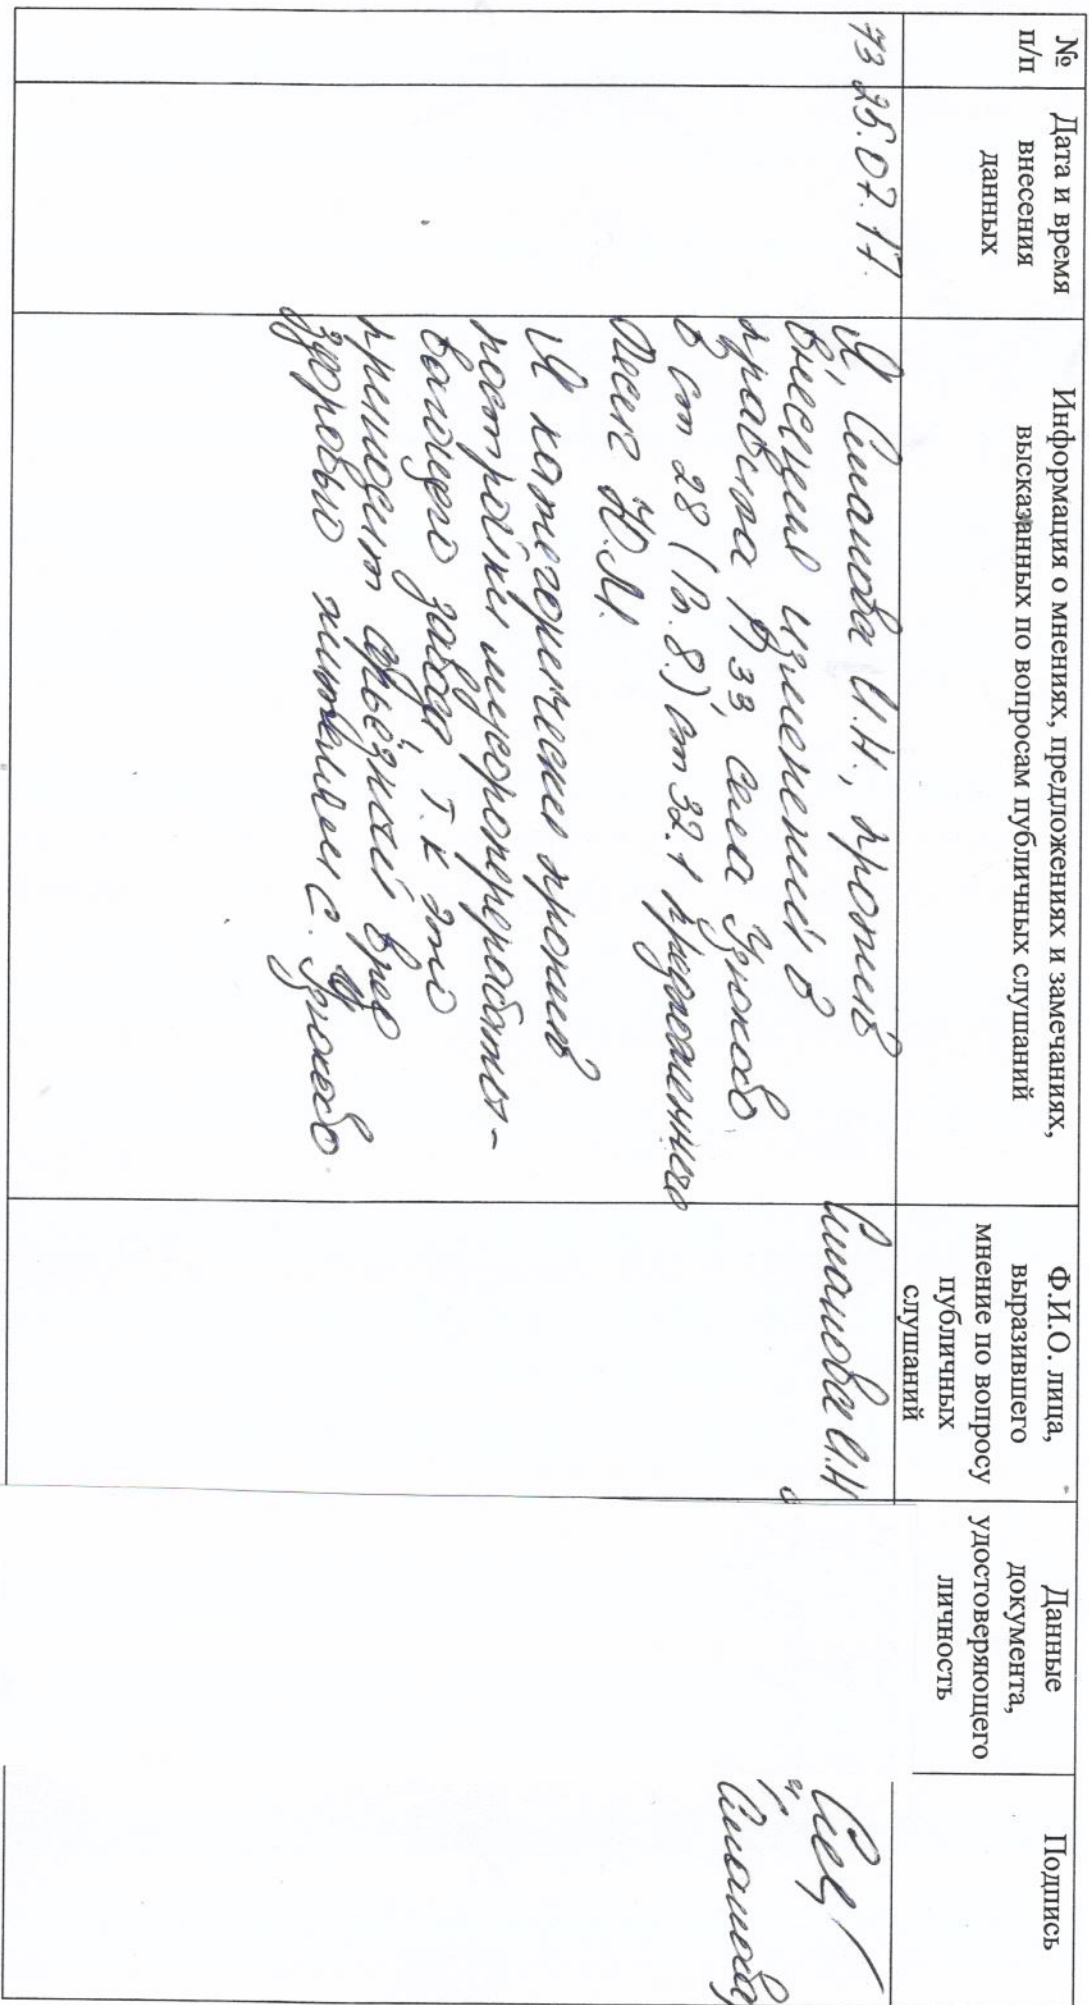 №
п/п
Дата и время
внесения
данных
Информация о мнениях, предложениях и замечаниях,
высказанных по вопросам публичных слушаний
Ф.И.О. лица,
выразившего
мнение по вопросу
публичных
слушаний
Данные
документа,
удостоверяющего
личность
Подпись
73 25.07.17.
Я, И.Н., против
внесения изменений в
правила ПЗЗ, села Узюково
в ст 28 (В. 8.) ст 32.1 предложенного
Ю.М.
Я категорически против
постройки мусороперерабаты-
вающего завода, т.к это
приносит серьёзный вред
здоровью жителям с. Узюково.
И.Н